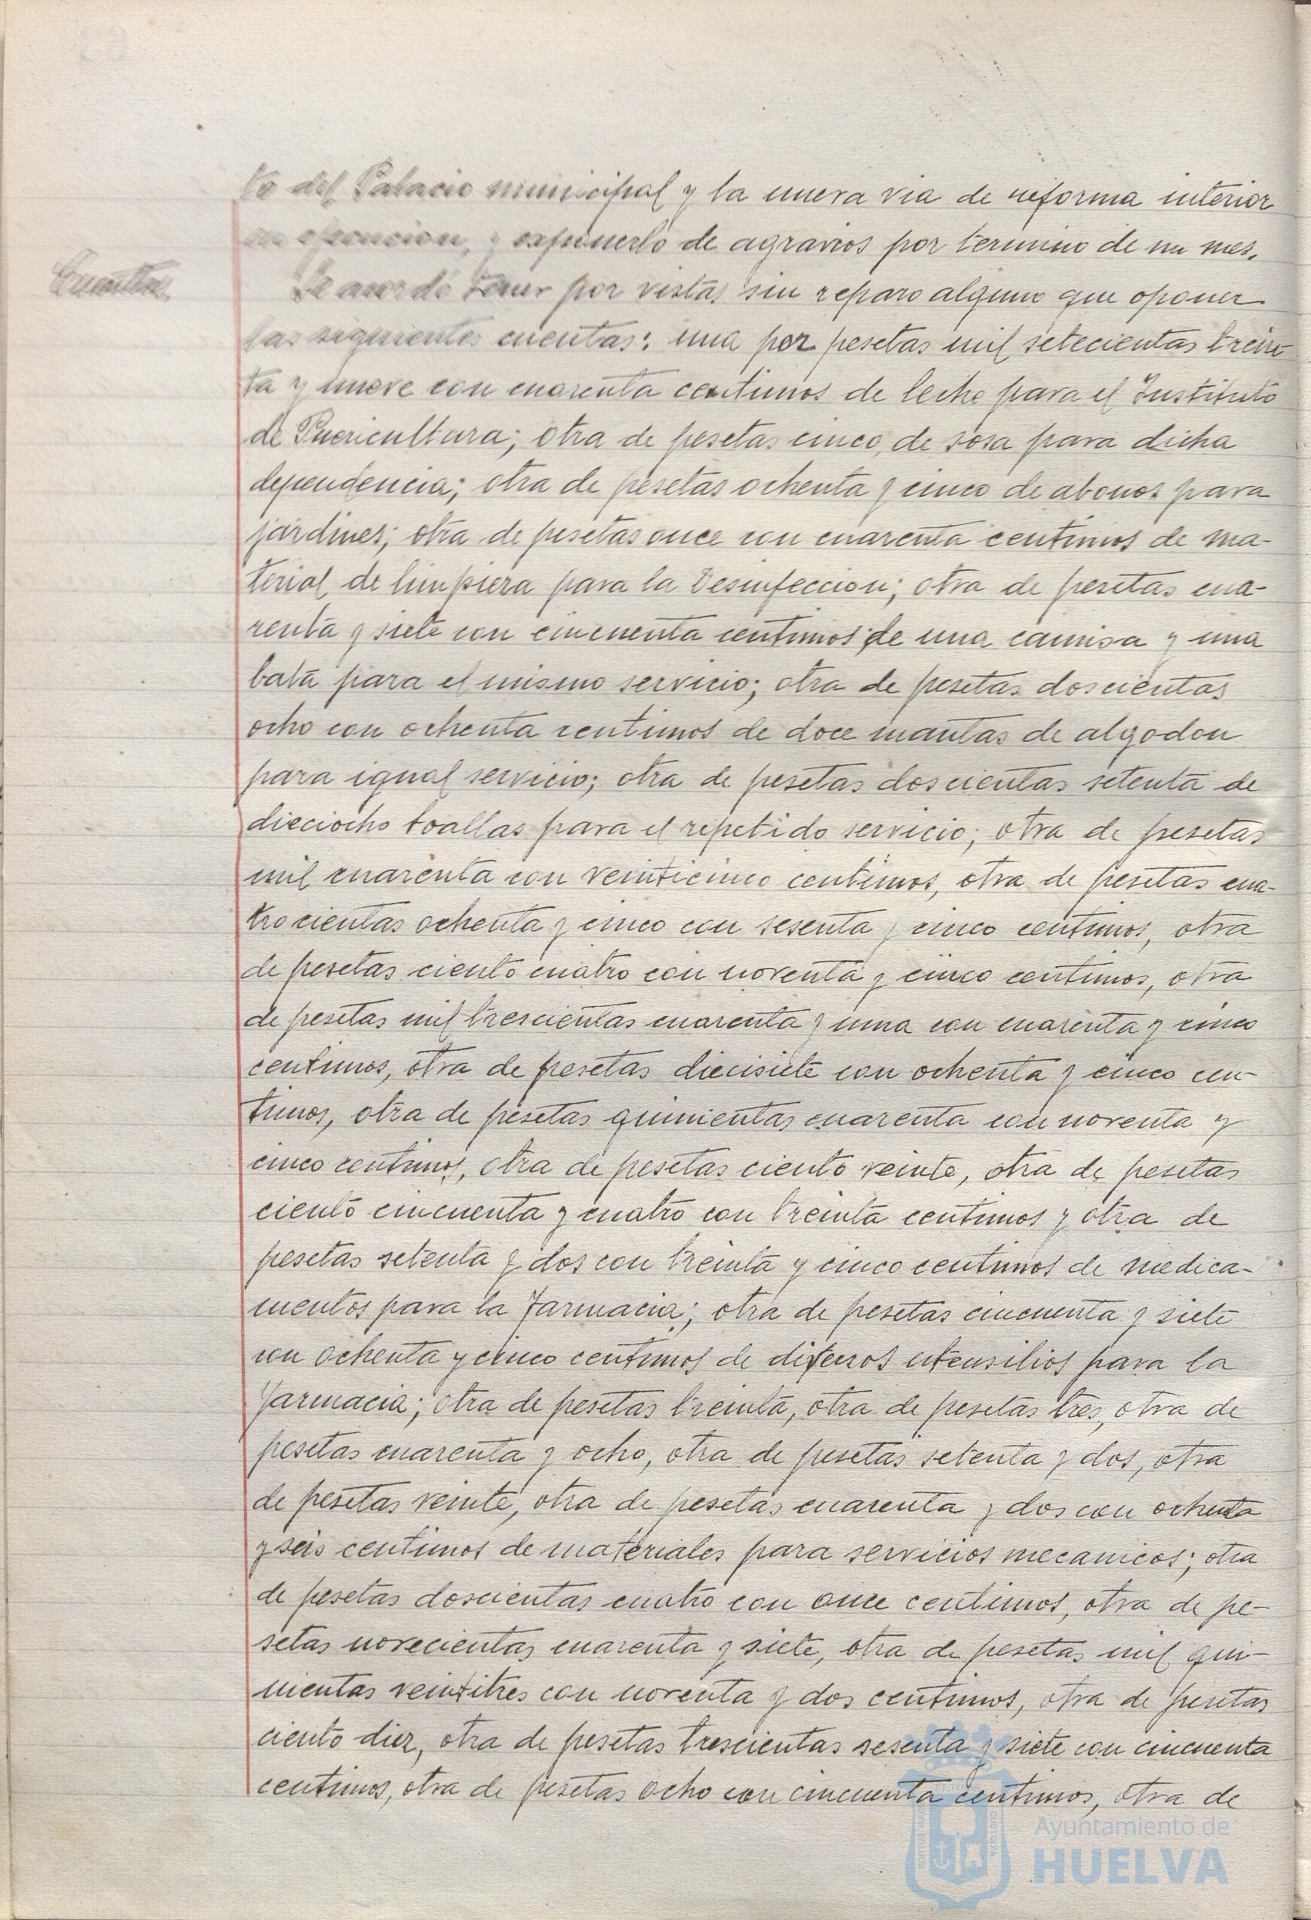 to del Palacio municipal y la nueva via de reforma interior
en ejecucion, y exponerlo de agravios por termino de un mes.
Cuentas. Se acordó tener por vistas sin reparo alguno que oponer
las siguientes cuentas: una por pesetas mil setecientas trein-
ta y nueve con cuarenta centimos de leche para el Instituto
de Puericultura; otra de pesetas cinco, de sosa para dicha
dependencia; otra de pesetas ochenta y cinco de abonos para
jardines; otra de pesetas once con cuarenta centimos de ma-
terial de limpieza para la Desinfeccion; otra de pesetas cua-
renta y siete con cincuenta centimos de una camisa y una
bata para el mismo servicio; otra de pesetas doscientas
ocho con ochenta centimos de doce mantas de algodon
para igual servicio; otra de pesetas doscientas setenta de
dieciocho toallas para el repetido servicio; otra de pesetas
mil cuarenta con veinticinco centimos, otra de pesetas cua-
trocientas ochenta y cinco con sesenta y cinco centimos, otra
de pesetas ciento cuatro con noventa y cinco centimos, otra
de pesetas mil trescientas cuarenta y una con cuarenta y cinco
centimos, otra de pesetas diecisiete con ochenta y cinco cen-
timos, otra de pesetas quinientas cuarenta con noventa y
cinco centimos, otra de pesetas ciento veinte, otra de pesetas
ciento cincuenta y cuatro con treinta centimos y otra de
pesetas setenta y dos con treinta y cinco centimos de medica-
mentos para la Farmacia; otra de pesetas cincuenta y siete
con ochenta y cinco centimos de diversos utensilios para la
Farmacia; otra de pesetas treinta, otra de pesetas tres, otra de
pesetas cuarenta y ocho, otra de pesetas setenta y dos, otra
de pesetas veinte, otra de pesetas cuarenta y dos con ochenta
y seis centimos de materiales para servicios mecanicos; otra
de pesetas doscientas cuatro con once centimos, otra de pe-
setas novecientas cuarenta y siete, otra de pesetas mil qui-
nientas veintitres con noventa y dos centimos, otra de pesetas
ciento diez, otra de pesetas trescientas sesenta y siete con cincuenta
centimos, otra de pesetas ocho con cincuenta centimos, otra de
Ayuntamiento de
HUELVA